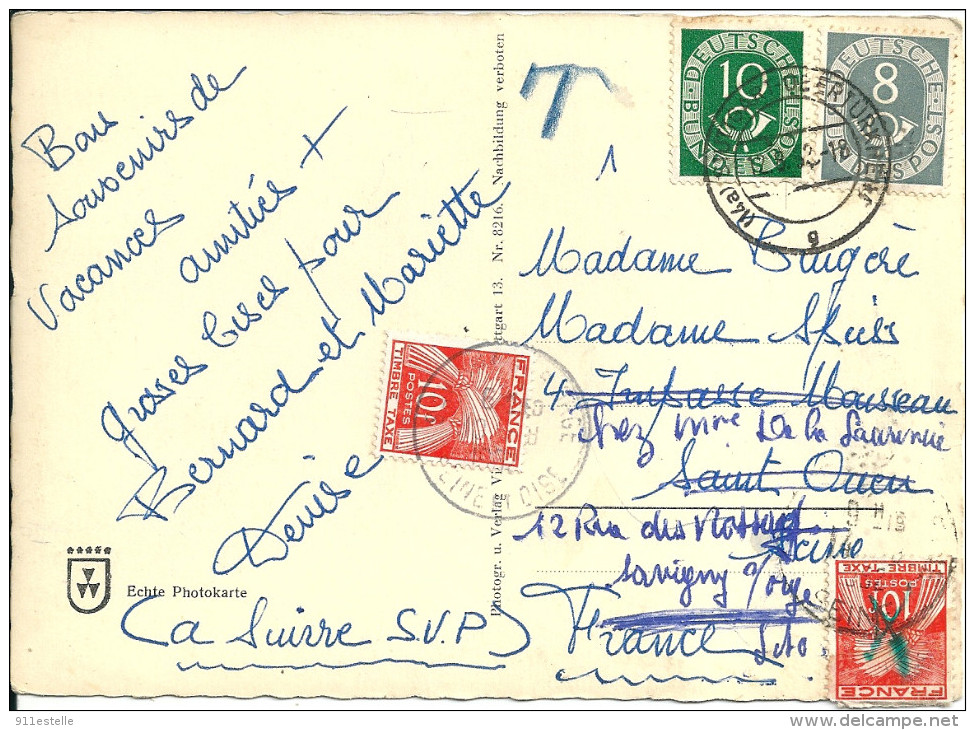 Bons
Souvenirs de
Vacances
amitiés +
grosses bises pour
Bernard et Mariette
Denise
Echte Photokarte
(a Suivre S.V.P)
Photogr. u. Verlag
ttgart 13. Nr. 8216. Nachbildung verboten
T
1
10
DEUTSCHE
BUNDESPOST
8
DEUTSCHE
(14a)
g
Madame
Madame
4 Impasse Marceau
chez Mme De la
Saint Ouen
12 Rue des
Seine
Savigny s/Orge
France
S et O
FRANCE
10f
POSTES
TIMBRE TAXE
SEINE ET OISE
FRANCE
10f
POSTES
TIMBRE TAXE
911estelle
delcampe.net